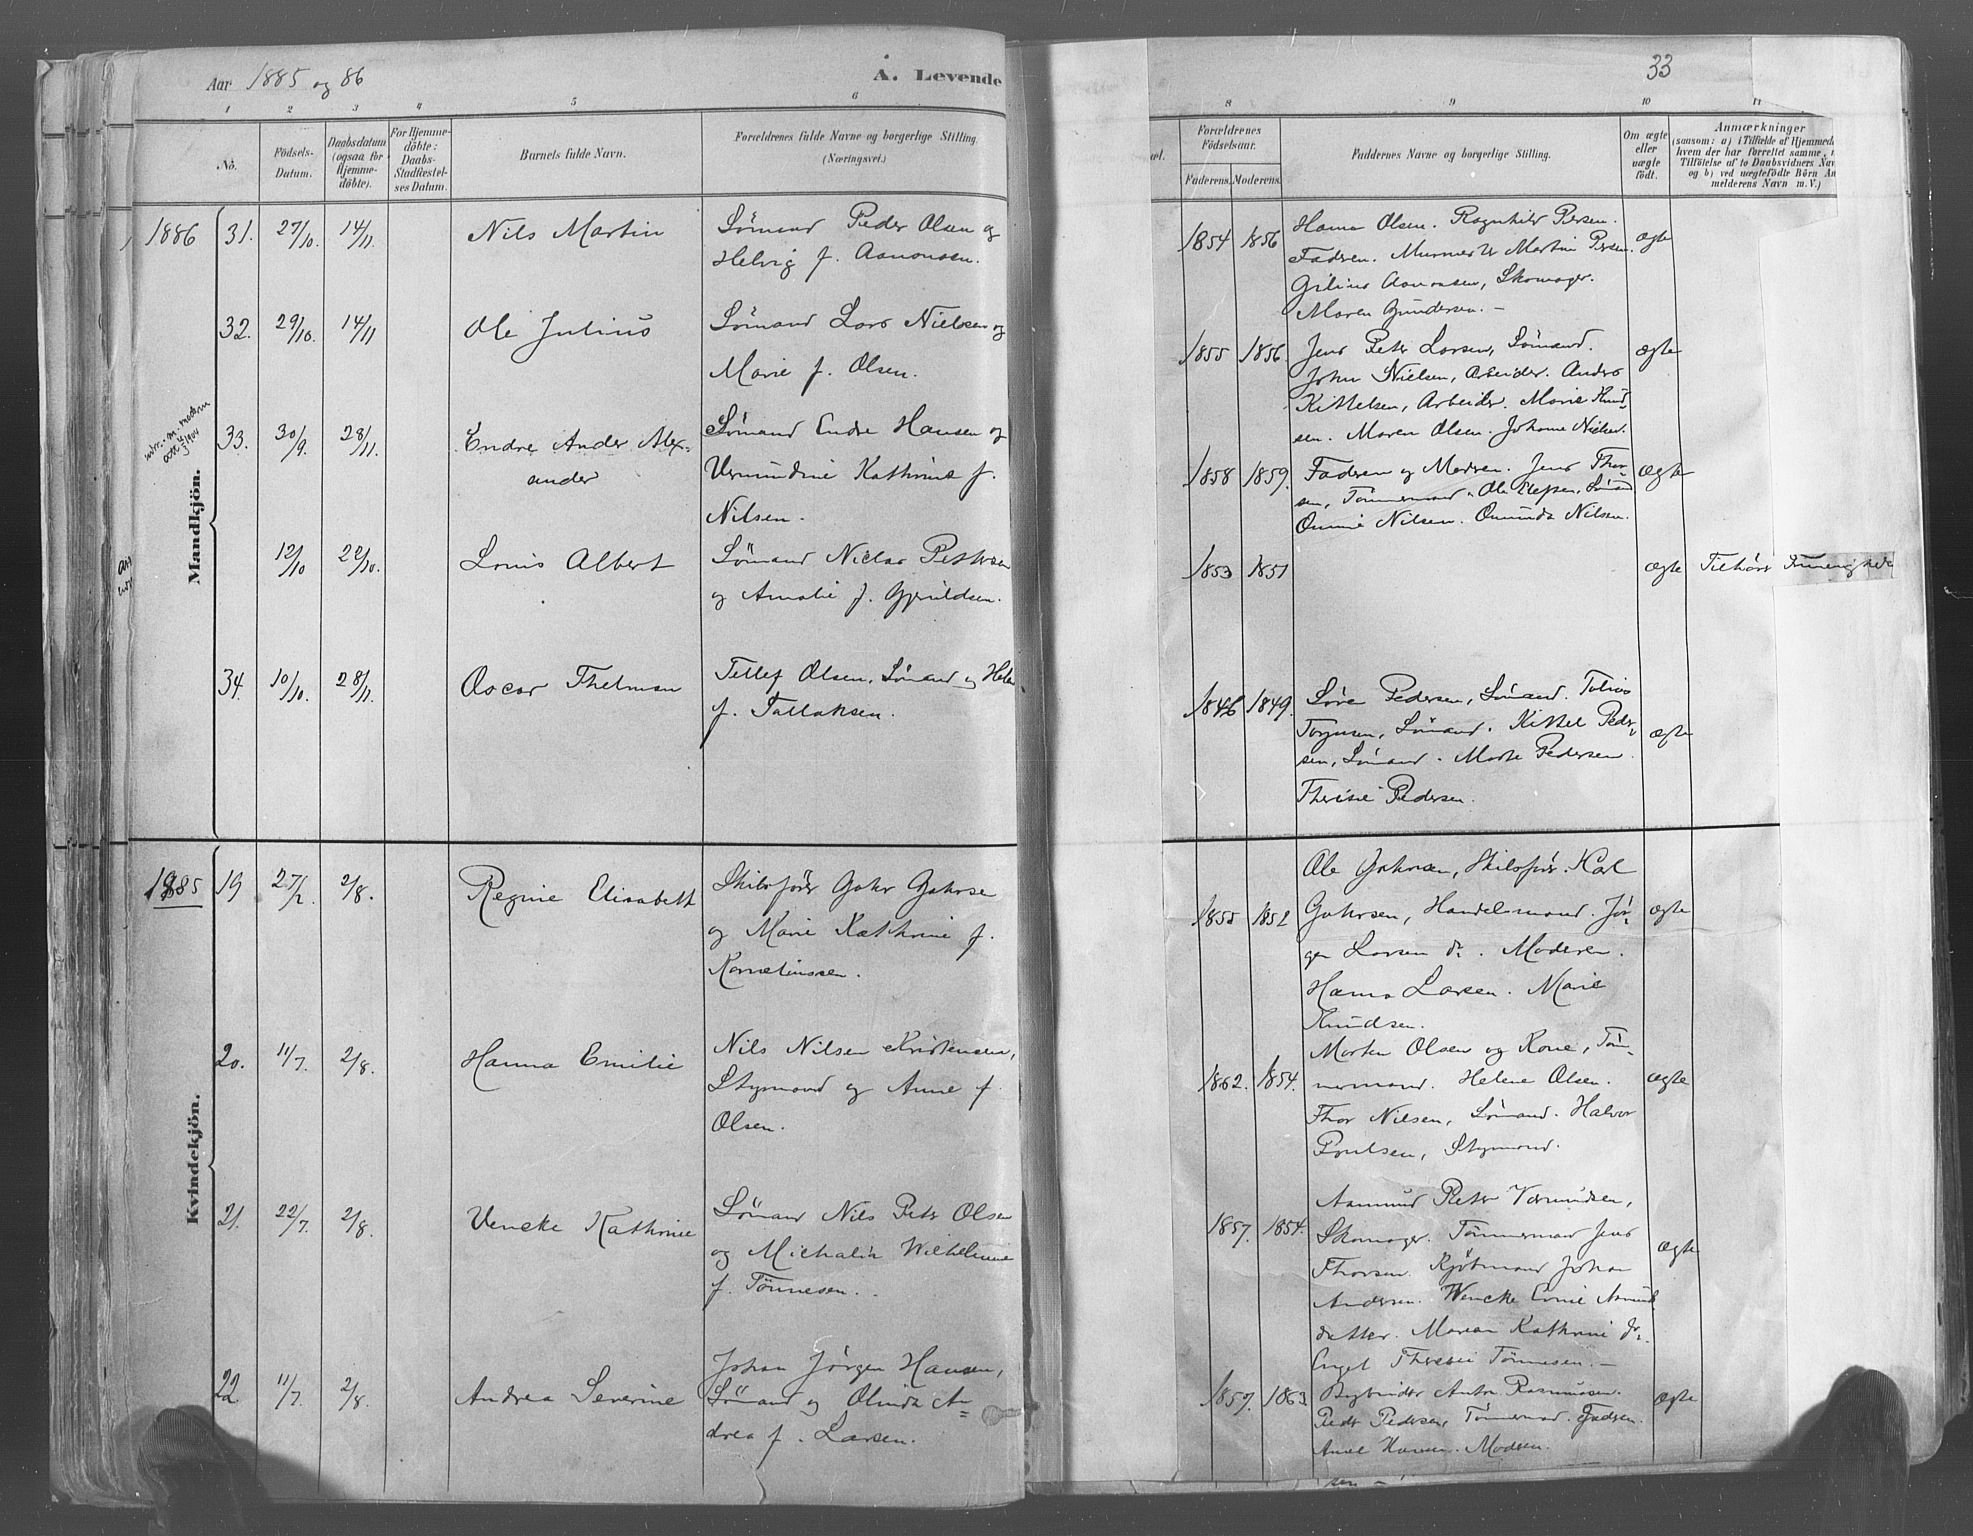 Aar 1885 og 86
A. Levende
33
1 2 3 4 5 6 8 9 10 11
No.
Födsels-
Datum.
Daabsdatum
(ogsaa for
Hjemme-
döbte).
For Hjemme-
döbte:
Daabs-
Stadfæstel-
ses Datum.
Barnets fulde Navn.
Forældrenes fulde Navne og borgerlige Stilling
(Næringsvei.)
Forældrenes
Födselsaar.
Faderens. Moderens.
Faddernes Navne og borgerlige Stilling.
Om ægte
eller
uægte
født.
Anmærkninger
(saasom: a) i Tilfælde af Hjemmeda
hvem der har forrettet samme,
Tilföielse af to Daabsvidners Nav
og b) ved uægtefödte Börn An
melderens Navn m. V.)
Mandkjön.
1886 31. 27/10. 14/11 Nils Martin
Sömand Peder Olsen og
Helvig f. Aanonsen.
1854 1856
Hanna Olsen. Ragnhild Persen.
Faderen. Murmester Martin Persen.
Aanonsen, Skomager.
Maren Gundersen. –
ægte
32. 29/10. 14/11 Ole Julius
Sömand Lars Nielsen og
Marie f. Olsen.
1855 1856.
Jens Peter Larsen, Sömand.
John Nielsen, Arbeider. Anders
Kittelsen, Arbeider. Marie Knud-
sen. Maren Olsen. Johanne Nielsen.
ægte
33. 30/9. 28/11. Endre Ander Alex-
ander
Sömand Endre Hansen og
Vermundine Kathrine f.
Nilsen.
1858 1859.
Faderen og Modren. Jens Thor-
sen, Tömmermand. Ole Ellefsen, Sömand
Omunda Nilsen.
ægte
12/10 22/10. Louis Albert
Sömand Niclas Pettersen
og Amalie f. Gjeruldsen.
1853 1851
ægte Tilhörer Frimenighede
34. 10/10. 28/11. Oscar Thelman
Tellef Olsen, Sömand og Helene
f. Tallaksen.
1846 1849.
Sören Pedersen, Sömand. Tobias
Torjusen, Sömand. Kittel Peder-
sen, Sömand. Marte Pedersen
Therese Pedersen.
ægte
Kvindekjön.
1885 19 27/2. 2/8. Regine Elisabett
Skibsförer Gahr Gahrsen
og Marie Kathrine f.
Korneliussen.
1855 1852
Ole Gahrsen, Skibsförer. Karl
Gahrsen, Handelsmand. Jör-
gen Larsen do. Moderen.
Hanna Larsen. Marie
Knudsen.
ægte
20. 11/7. 2/8. Hanna Emilie
Nils Nilsen Kristensen,
Styrmand og Anne f.
Olsen.
1862. 1854.
Morten Olsen og Kone, Töm-
mermand. Helene Olsen.
Thor Nilsen, Sömand. Halvor
Poulsen, Styrmand.
ægte
21. 22/7. 2/8. Vencke Kathrine
Sömand Nils Peter Olsen
og Michalia Wilhelmine
f. Tönnesen.
1857. 1854.
Aamund Peter Vermundsen,
Skomager. Tömmermand Jens
Thorsen. Johan
Andersen. Wencke
datter. Maren Kathrine
Engel Therese Tönnesen. –
ægte
22. 11/7. 2/8. Andrea Severine
Johan Jörgen Hansen,
Sömand og Olinda An-
drea f. Larsen.
1857. 1863
Rasmussen.
Peder Pedersen, Tömmermand. Fadren.
Anne Hansen. Modren.
ægte